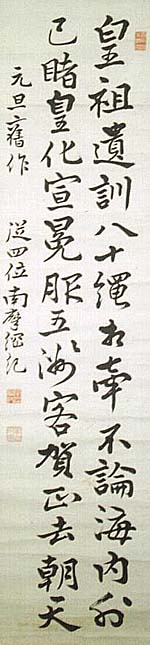 皇祖遺訓八十縄相牽不論海内外
已睹皇化宣冕服五洲客賀正去朝天
元旦舊作　從四位南摩綱紀